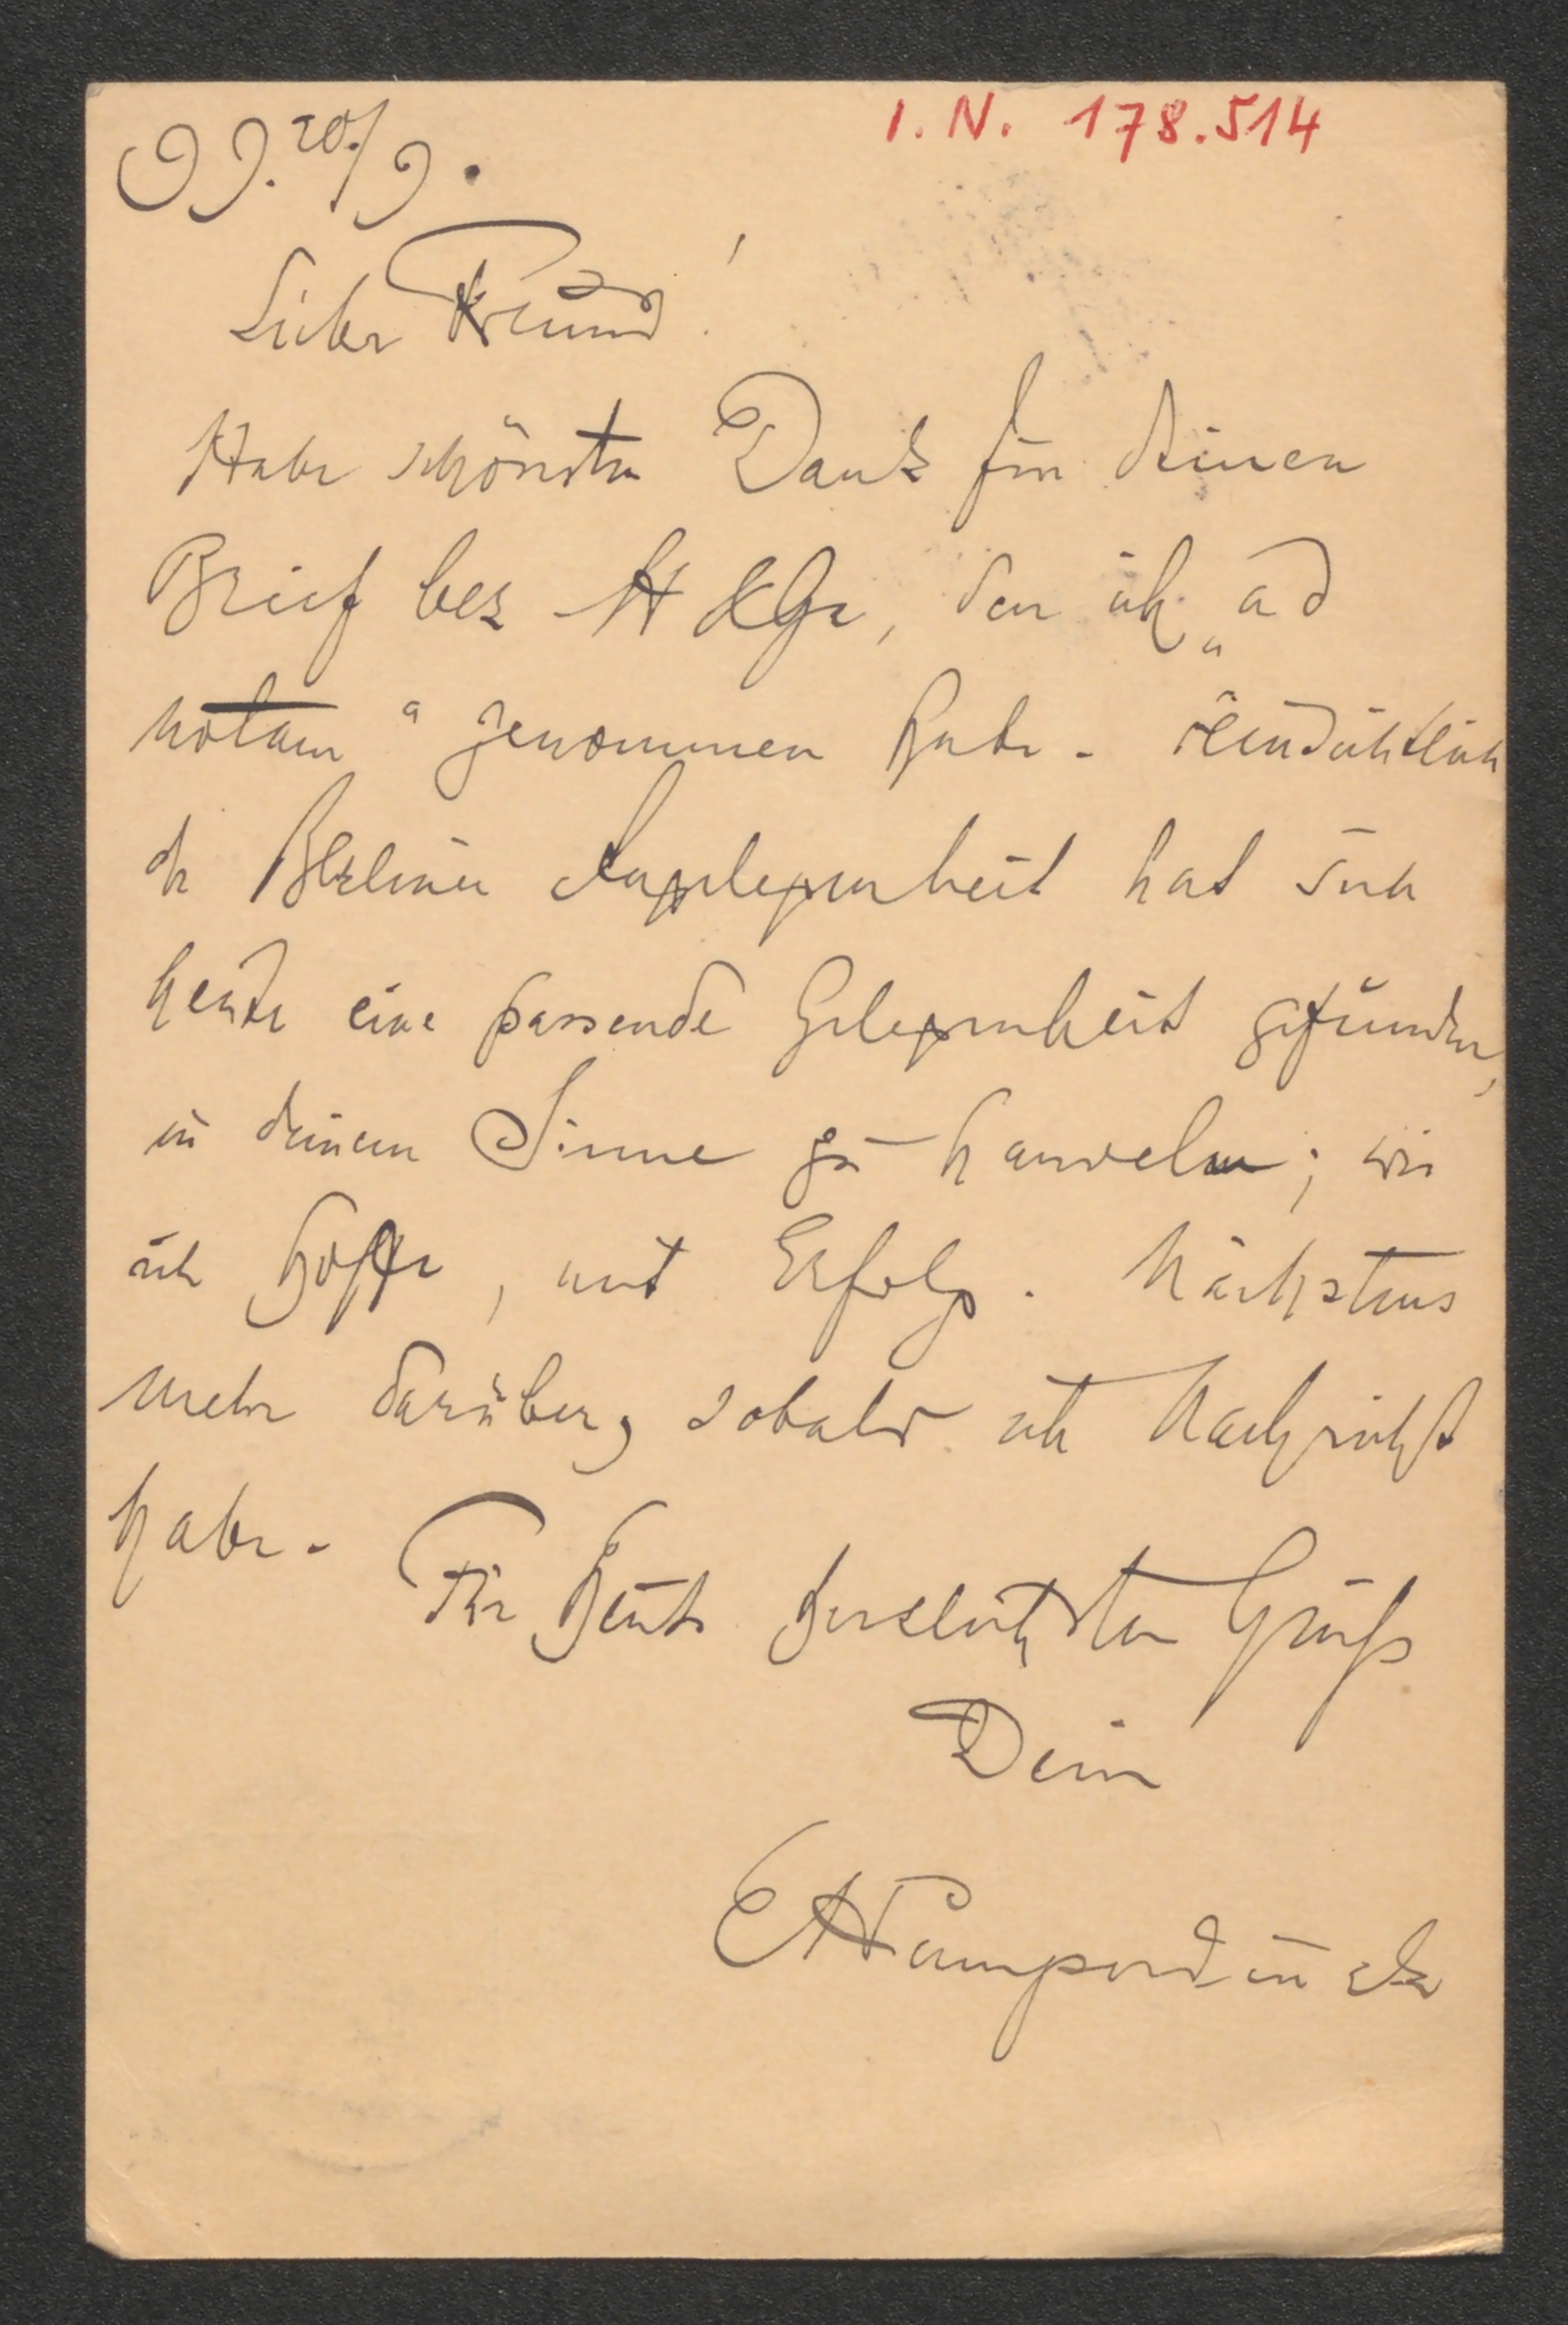 I. N. 178.514
99. 20./9.
Lieber Freund!
Habe schönsten Dank für deinen
Brief bez , den ich „ad
notam“ genommen habe. Hinsichtlich
der Berliner Angelegenheit hat sich
heute eine passende Gelegenheit gefunden,
in deinem Sinne zu handeln; wie
ich hoffe, mit Erfolg. Nächstens
mehr darüber, sobald ich Nachricht
habe. Für heute herzlichsten Gruß
Dein
EHumperdinck